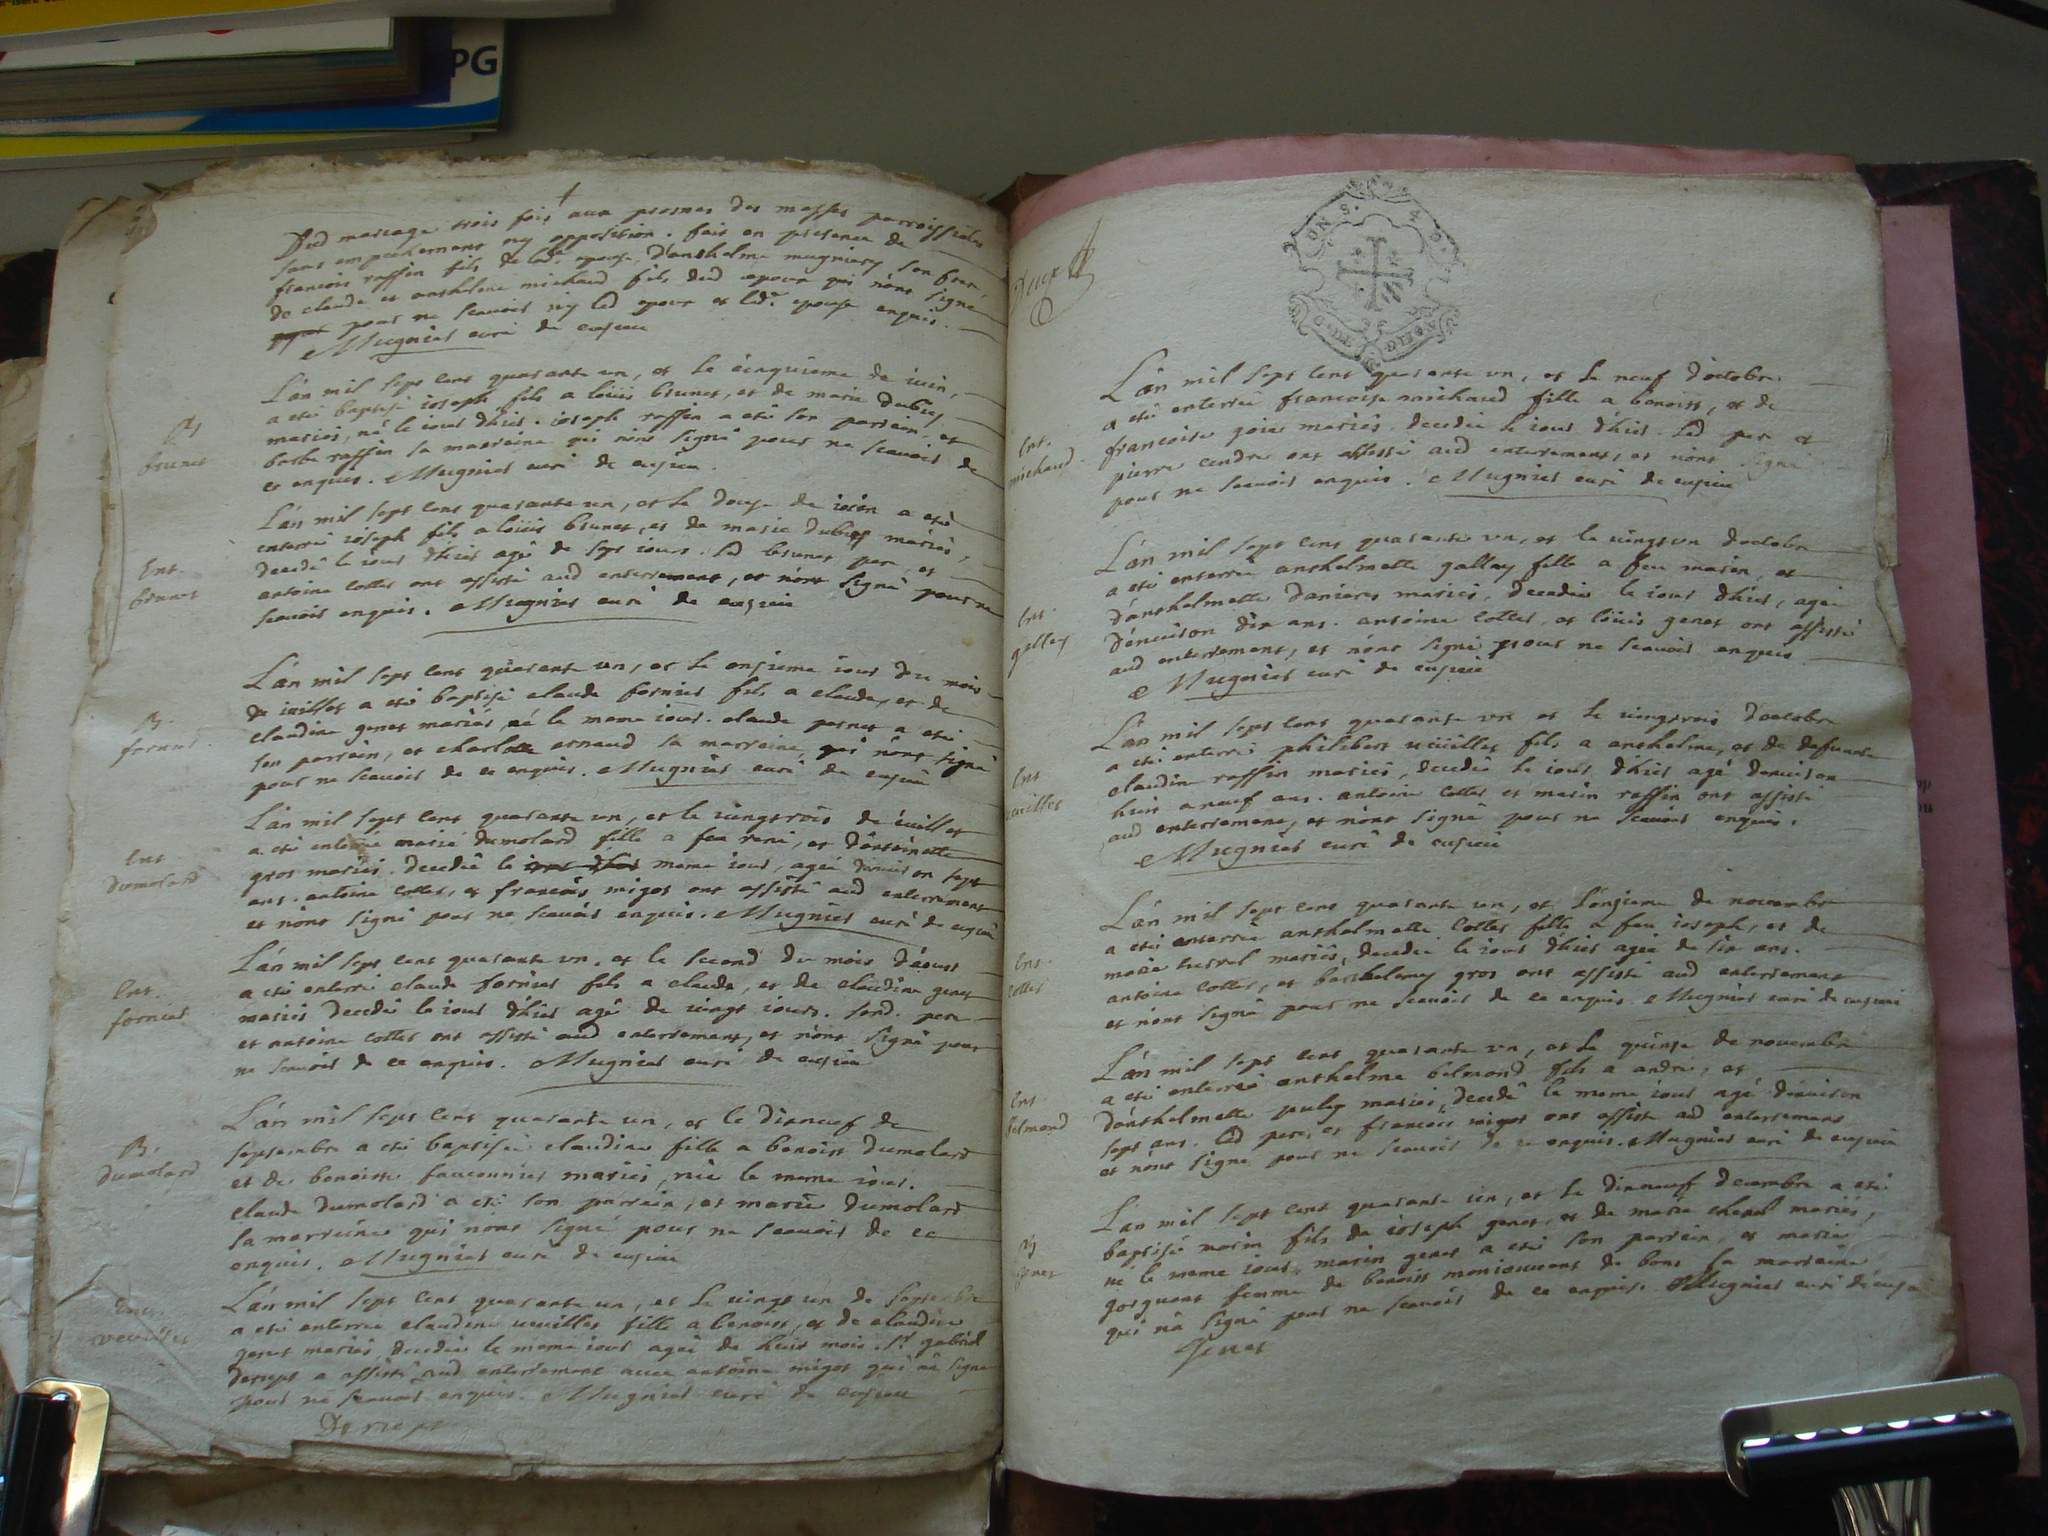 PG
Dud mariage trois fois aux prosnes des messes parroissiales
sans empechement ny opposition. fait en presence de
francois raffin fils de lad.e epouse, d'anthelme mugniery son frere,
de claude et anthelme michaud fils dud epoux qui n'ont signe
pour ne scavoir ny led epoux et lad.e epouse enquis.
Mugnier curé de cuzieu
B
brunet
L'an mil sept cent quarante un, et le cinquieme de iuin,
a eté baptisé ioseph fils a loüis brunet, et de marie dubiez
mariés, né le iour d'hier. ioseph raffin a eté son parrain et
barbe raffin sa marraine qui n'ont signé pour ne scavoir de
ce enquis. Mugnier curé de cuzieu.
Ent.
brunet
L'an mil sept cent quarante un, et le douze de iuin a eté
enterré ioseph fils a loüis brunet, et de marie dubiez mariés,
decedé le iour d'hier agé de sept iours. led brunet pere, et
antoine collet ont assisté aud enterrement, et n'ont signé pour ne
scavoir enquis. Mugnier curé de cuzieu
B.
fornier
L'an mil sept cent quarante un, et le onzieme iour du mois
de iuillet a eté baptisé claude fornier fils a claude, et de
claudine genet mariés, né le meme iour. claude pernet a eté
son parrain, et charlotte ernaud sa marraine qui n'ont signé
pour ne scavoir de ce enquis. Mugnier curé de cuzieu
Ent
Dumolard
L'an mil sept cent quarante un, et le vingtrois de iuillet
a eté enterré marie dumolard fille a feu rené, et d'antoinette
gros mariés. decedée le iour d'hier meme iour, agée d'environ sept
ans. antoine collet, et francois migot ont assisté aud enterrement
et n'ont signé pour ne scavoir enquis. Mugnier curé de cuzieu
Ent.
fornier
L'an mil sept cent quarante un, et le second du mois d'aoust
a eté enterré claude fornier fils a claude, et de claudine genet
mariés decedé le iour d'hier agé de vingt iours. sond. pere
et antoine collet ont assisté aud enterrement, et n'ont signé pour
ne scavoir de ce enquis. Mugnier curé de cuzieu
B.
dumolard
L'an mil sept cent quarante un, et le dixneuf de
septembre a eté baptisée claudine fille a benoist dumolard
et de benoiste fauconnier mariés, née le meme iour.
claude dumolard a eté son parrain, et marie dumolard
la marraine qui n'ont signé pour ne scavoir de ce
enquis. Mugnier curé de cuzieu
Ent.
veuillet
L'an mil sept cent quarante un, et le vingt un de septembre
a eté enterrée claudine veuillet fille a benoist, et de claudine
genet mariés, decedée le meme iour agée de huit mois. s.r gabriel
deriept a assisté aud enterrement avec antoine migot qui n'a signé
pour ne scavoir enquis. Mugnier curé de cuzieu
Deriept
Deux
Ent.
michaud
L'an mil sept cent quarante un, et le neuf d'octobre
a eté enterrée francoise michaud fille a benoist, et de
francoise goix mariés, decedée le iour d'hier. led pere et
pierre cendre ont assisté aud enterrement, et n'ont signé
pour ne scavoir enquis. Mugnier curé de cuzieu
Ent
gallay
L'an mil sept cent quarante un, et le vingtun d'octobre
a eté enterrée anthelmette gallay fille a feu marin, et
d'anthelmette danieres mariés, decedée le iour d'hier, agée
d'environ dix ans. antoine collet, et loüis genet ont assisté
aud enterrement, et n'ont signé pour ne scavoir enquis
Mugnier curé de cuzieu
Ent
veuillet
L'an mil sept cent quarante un et le vingtrois d'octobre
a eté enterré philibert veüillet fils a anthelme, et de defuncte
claudine raffin mariés, decedé le iour d'hier agé d'environ
huit a neuf ans. antoine collet et marin raffin ont assisté
aud enterrement, et n'ont signé pour ne scavoir enquis.
Mugnier curé de cuzieu
Ent.
collet
L'an mil sept cent quarante un, et l'onzieme de novembre
a eté enterrée anthelmette collet fille a feu ioseph, et de
marie mariés, decedée le iour d'hier agée de six ans.
antoine collet, et barthelemy gros ont assisté aud enterrement
et n'ont signé pour ne scavoir de ce enquis. Mugnier curé de cuzieu
Ent
belmond
L'an mil sept cent quarante un, et le quinze de novembre
a eté enterré anthelme belmond fils a andré, et
d'anthelmette pulez mariés, decedé le meme iour agé d'environ
sept ans. led pere, et francois migot ont assisté aud enterrement
et n'ont signé pour ne scavoir de ce enquis. Mugnier curé de cuzieu
B
genet
L'an mil sept cent quarante un, et le dixneuf decembre a eté
baptisé marin fils de ioseph genet, et de marie chapel mariés,
né le meme iour. marin genet a eté son parrain, et marie
gorguent femme de benoist moniouvent de bons sa marraine
qui n'a signé pour ne scavoir de ce enquise. Mugnier curé de cuzieu
Genet